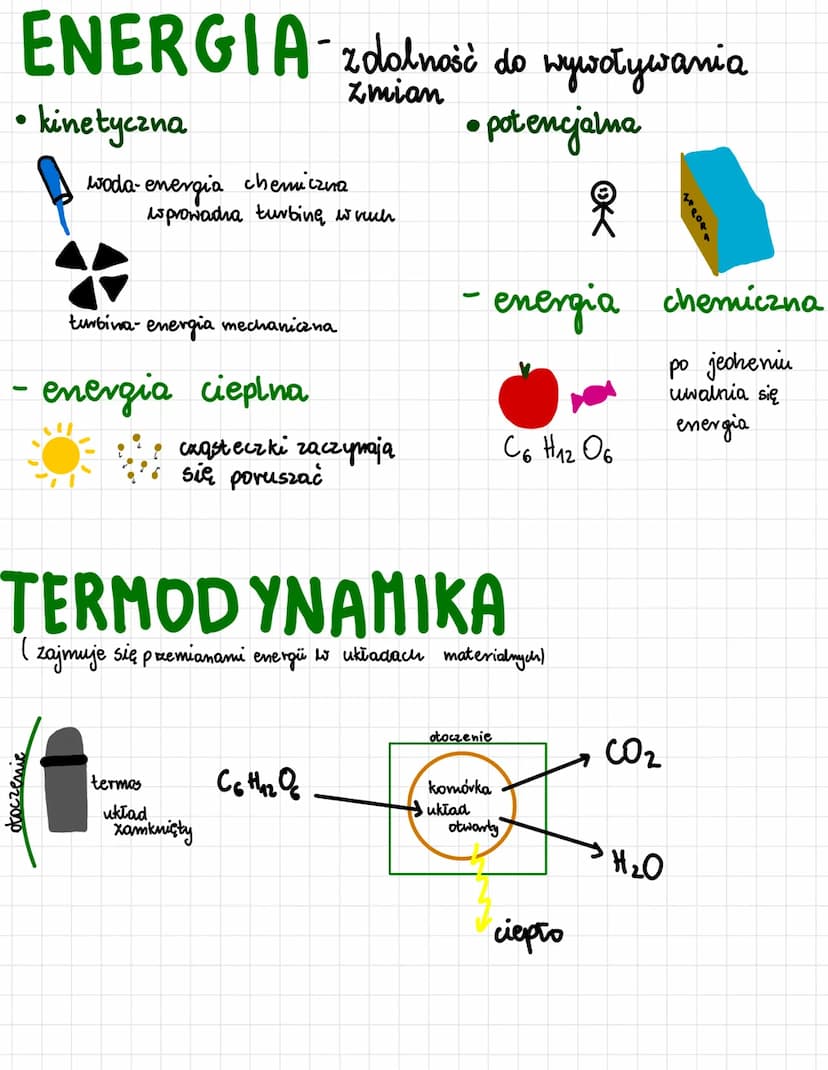 ENERGIA - zdolność do wywoływania
zmian
• kinetyczna
woda-energia chemiczna
wprowadna turbinę w ruch
turbina-energia mechaniczna
- energia cieplna
cząsteczki zaczynają
się poruszać
• potencjalna
ZAPORA
- energia chemiczna
po jedzeniu
uwalnia się
energia
C₆H₁₂O₆
TERMODYNAMIKA
(zajmuje się przemianami energii w układach materialnych)
otoczenie
termos
układ
zamknięty
C₆H₁₂O₆
otoczenie
komórka
układ
otwarty
CO₂
H₂O
ciepło